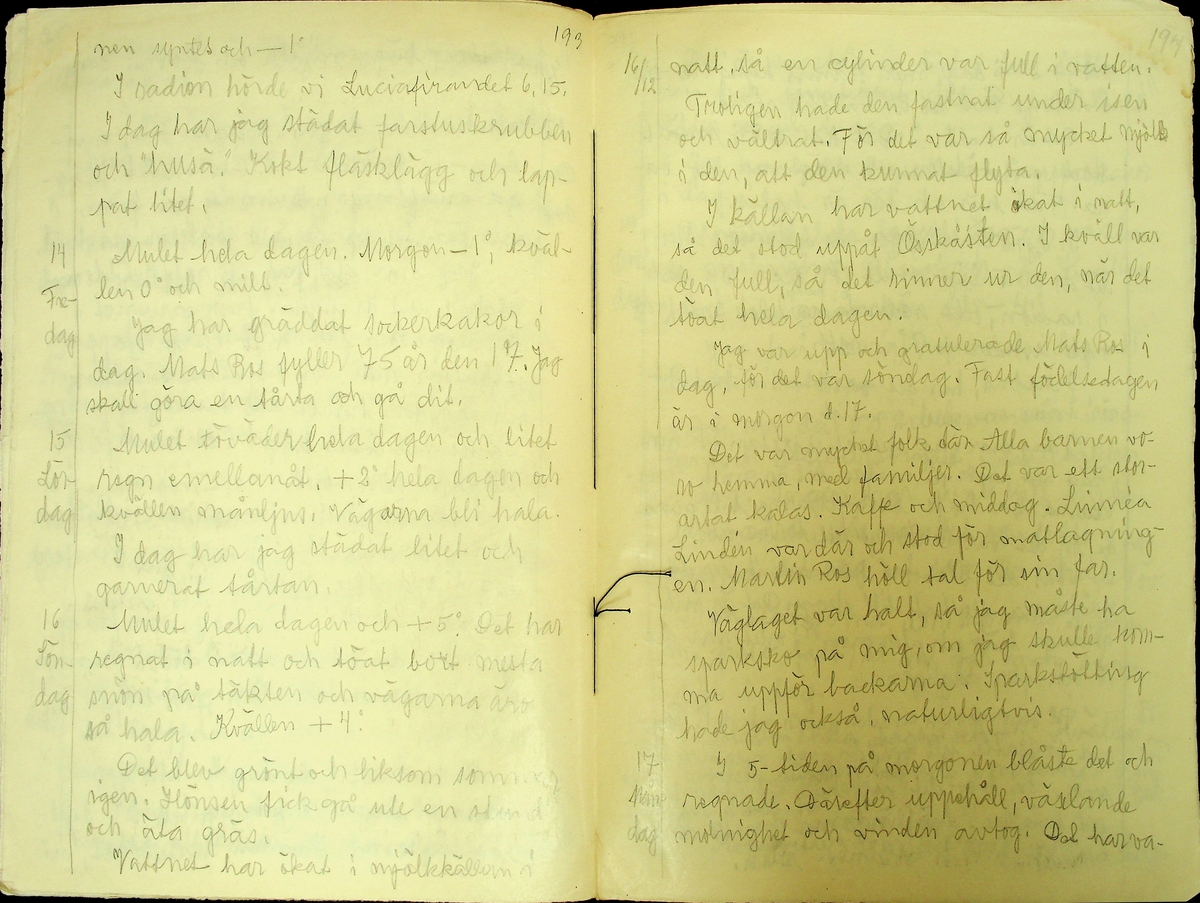 193
nen syntes och -1°
I radion hörde vi Luciafirandet 6,15.
I dag har jag städat farstuskrubben
och "huså". Kokt fläsklägg och lap-
pat litet.
14 Mulet hela dagen. Morgon -1°, kväl-
Fre- len 0° och milt.
dag Jag har gräddat sockerkakor i
dag. Mats Ros fyller 75 år den 17. Jag
skall göra en tårta och gå dit.
15 Mulet töväder hela dagen och litet
Lör- regn emellanåt. +2° hela dagen och
dag kvällen månljus. Vägarna bli hala.
I dag har jag städat litet och
garnerat tårtan.
16 Mulet hela dagen och +5°. Det har
Sön- regnat i natt och töat bort mesta
dag snön på täkten och vägarna äro
så hala. Kvällen +4°.
Det blev grönt och liksom sommar
igen. Hönsen fick gå ute en stund
och äta gräs.
Vattnet har ökat i mjölkkällan i
194
16/12 natt, så en cylinder var full i vatten.
Troligen hade den fastnat under isen
och vältrat. För det var så mycket mjölk
i den, att den kunnat flyta.
I källan har vattnet ökat i natt,
så det stod uppåt Össkåsten. I kväll var
den full, så det rinner ur den, när det
töat hela dagen.
Jag var upp och gratulerade Mats Ros i
dag, för det var söndag. Fast födelsedagen
är i morgon d. 17.
Det var mycket folk där. Alla barnen vo-
ro hemma, med familjer. Det var ett stor-
artat kalas. Kaffe och middag. Linnéa
Lindén var där och stod för matlagning-
en. Martin Ros höll tal för sin far.
Väglaget var halt, så jag måste ha
sparksko på mig, om jag skulle kom-
ma uppför backarna. Sparkstötting
hade jag också, naturligtvis.
17 I 5-tiden på morgonen blåste det och
Mån- regnade. Därefter uppehåll, växlande
dag molnighet och vinden avtog. Det har va-